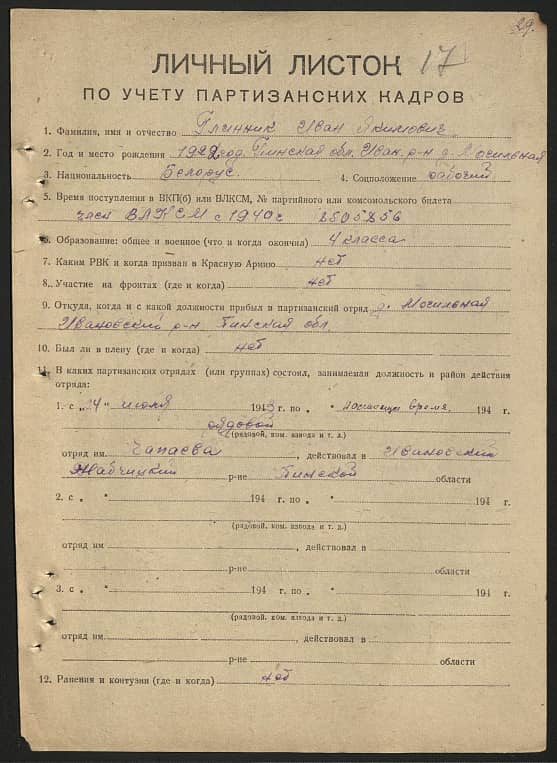 29.
ЛИЧНЫЙ ЛИСТОК 17
ПО УЧЕТУ ПАРТИЗАНСКИХ КАДРОВ
1. Фамилия, имя и отчество Глинник Иван Якимович
2. Год и место рождения 1922 год. Пинская обл. Иван. р-н д. Мосильная
3. Национальность Белорус. 4. Соцположение рабочий
5. Время поступления в ВКП(б) или ВЛКСМ, № партийного или комсомольского билета
член ВЛКСМ с 1940 г
6. Образование: общее и военное (что и когда окончил) 4 класса
7. Каким РВК и когда призван в Красную Армию нет
8. Участие на фронтах (где и когда) нет
9. Откуда, когда и с какой должности прибыл в партизанский отряд д. Мосильная
Ивановский р-н. Пинская обл.
10. Был ли в плену (где и когда) нет
11. В каких партизанских отрядах (или группах) состоял, занимаемая должность и район действия
отряда:
1. с „14" июля 1943 г. по „ " настоящее время. 194 г.
рядовой
(рядовой, ком. взвода и т. д.)
отряд им. Чапаева, действовал в Ивановский
Жабчицкий р-не Пинской области
2. с „ " 194 г. по „ " 194 г.
(рядовой, ком. взвода и т. д.)
отряд им , действовал в
р-не области
3. с „ " 194 г. по „ " 194 г.
(рядовой, ком. взвода и т. д.)
отряд им. , действовал в
р-не области
12. Ранения и контузии (где и когда) нет